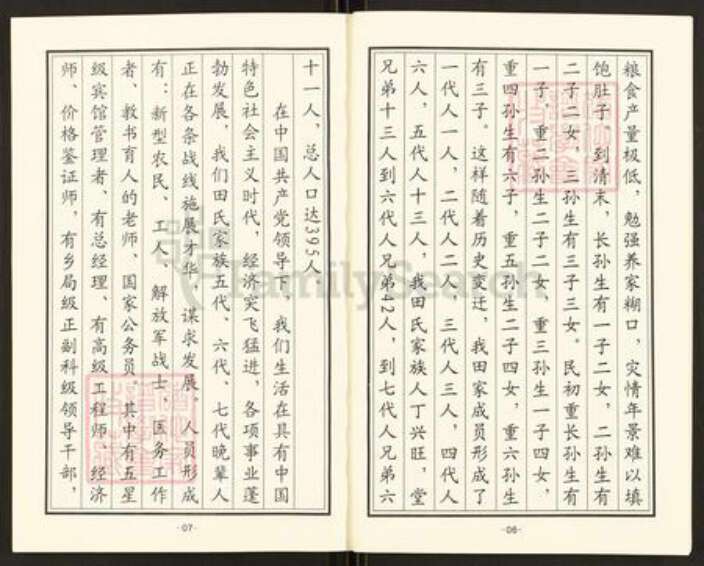 粮食产量极低，勉强养家糊口，灾情年景难以填
饱肚子，到清末，长孙生有一子二女，二孙生有
二子二女，三孙生有三子三女。民初重长孙生有
一子，重二孙生二子二女，重三孙生一子四女，
重四孙生有六子，重五孙生二子四女，重六孙生
有三子。这样随着历史变迁，我田家成员形成了
一代人一人，二代人二人，三代人三人，四代人
六人，五代人十三人，我田氏家族人丁兴旺，堂
兄弟十三人到六代人兄弟42人，到七代人兄弟六
-06-
十一人，总人口达395人。
在中国共产党领导下，我们生活在具有中国
特色社会主义时代，经济突飞猛进，各项事业蓬
勃发展，我们田氏家族五代、六代、七代晚辈人
正在各条战线施展才华，谋求发展。人员形成
有：新型农民、工人、解放军战士、医务工作
者、教书育人的老师、国家公务员，其中有五星
级宾馆管理者、有总经理、有高级工程师、经济
师、价格鉴证师，有乡局级正副科级领导干部，
-07-
FamilySearch